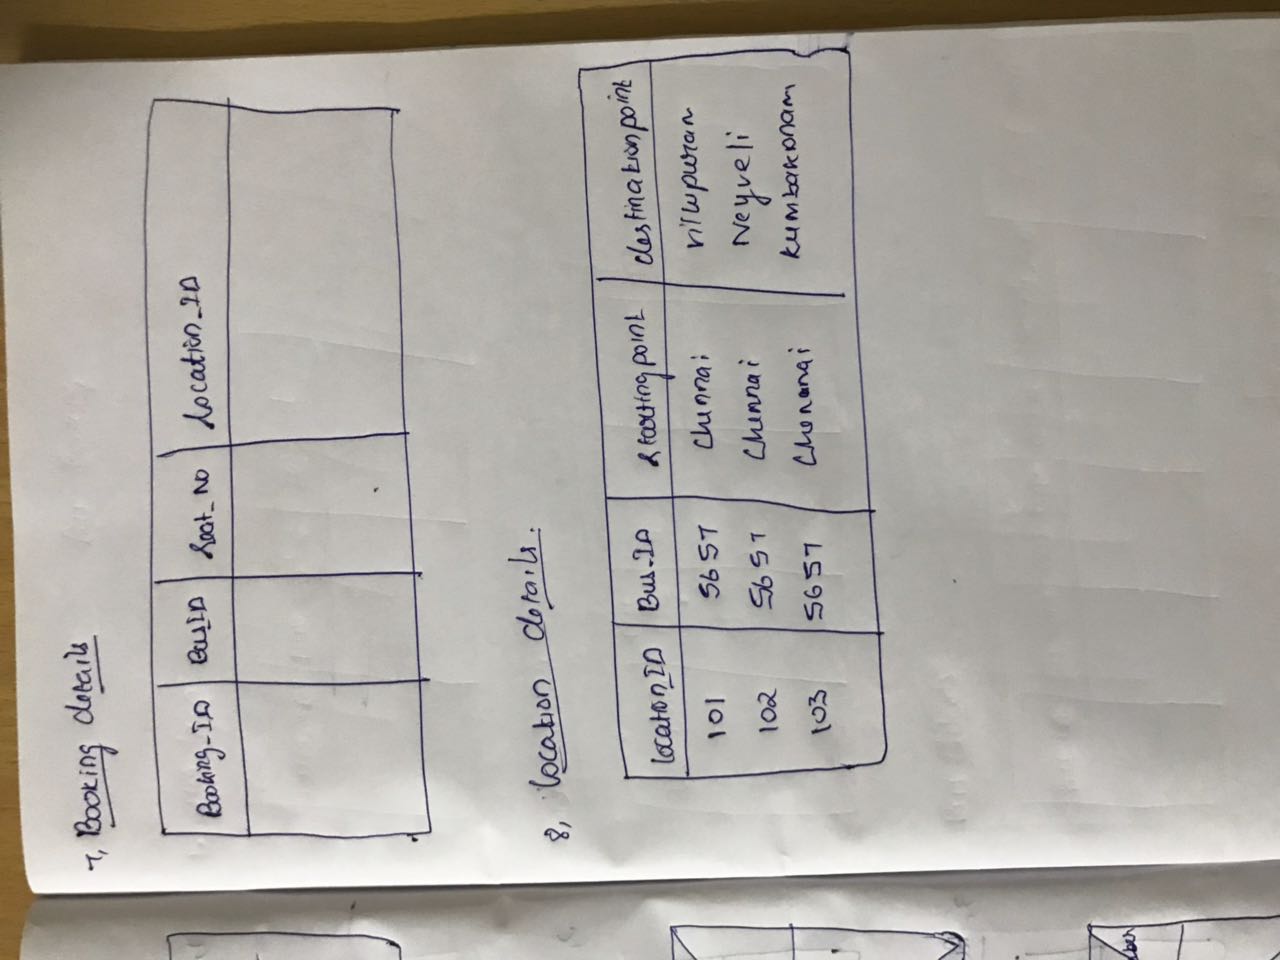 7, Booking details
Booking_ID Bus_ID Seat_No Location_ID
8, Location details:
Location_ID Bus_ID Starting point destination point
101 5657 Chennai villupuran
102 5657 Chennai Neyveli
103 5657 Chennai kumbakonam